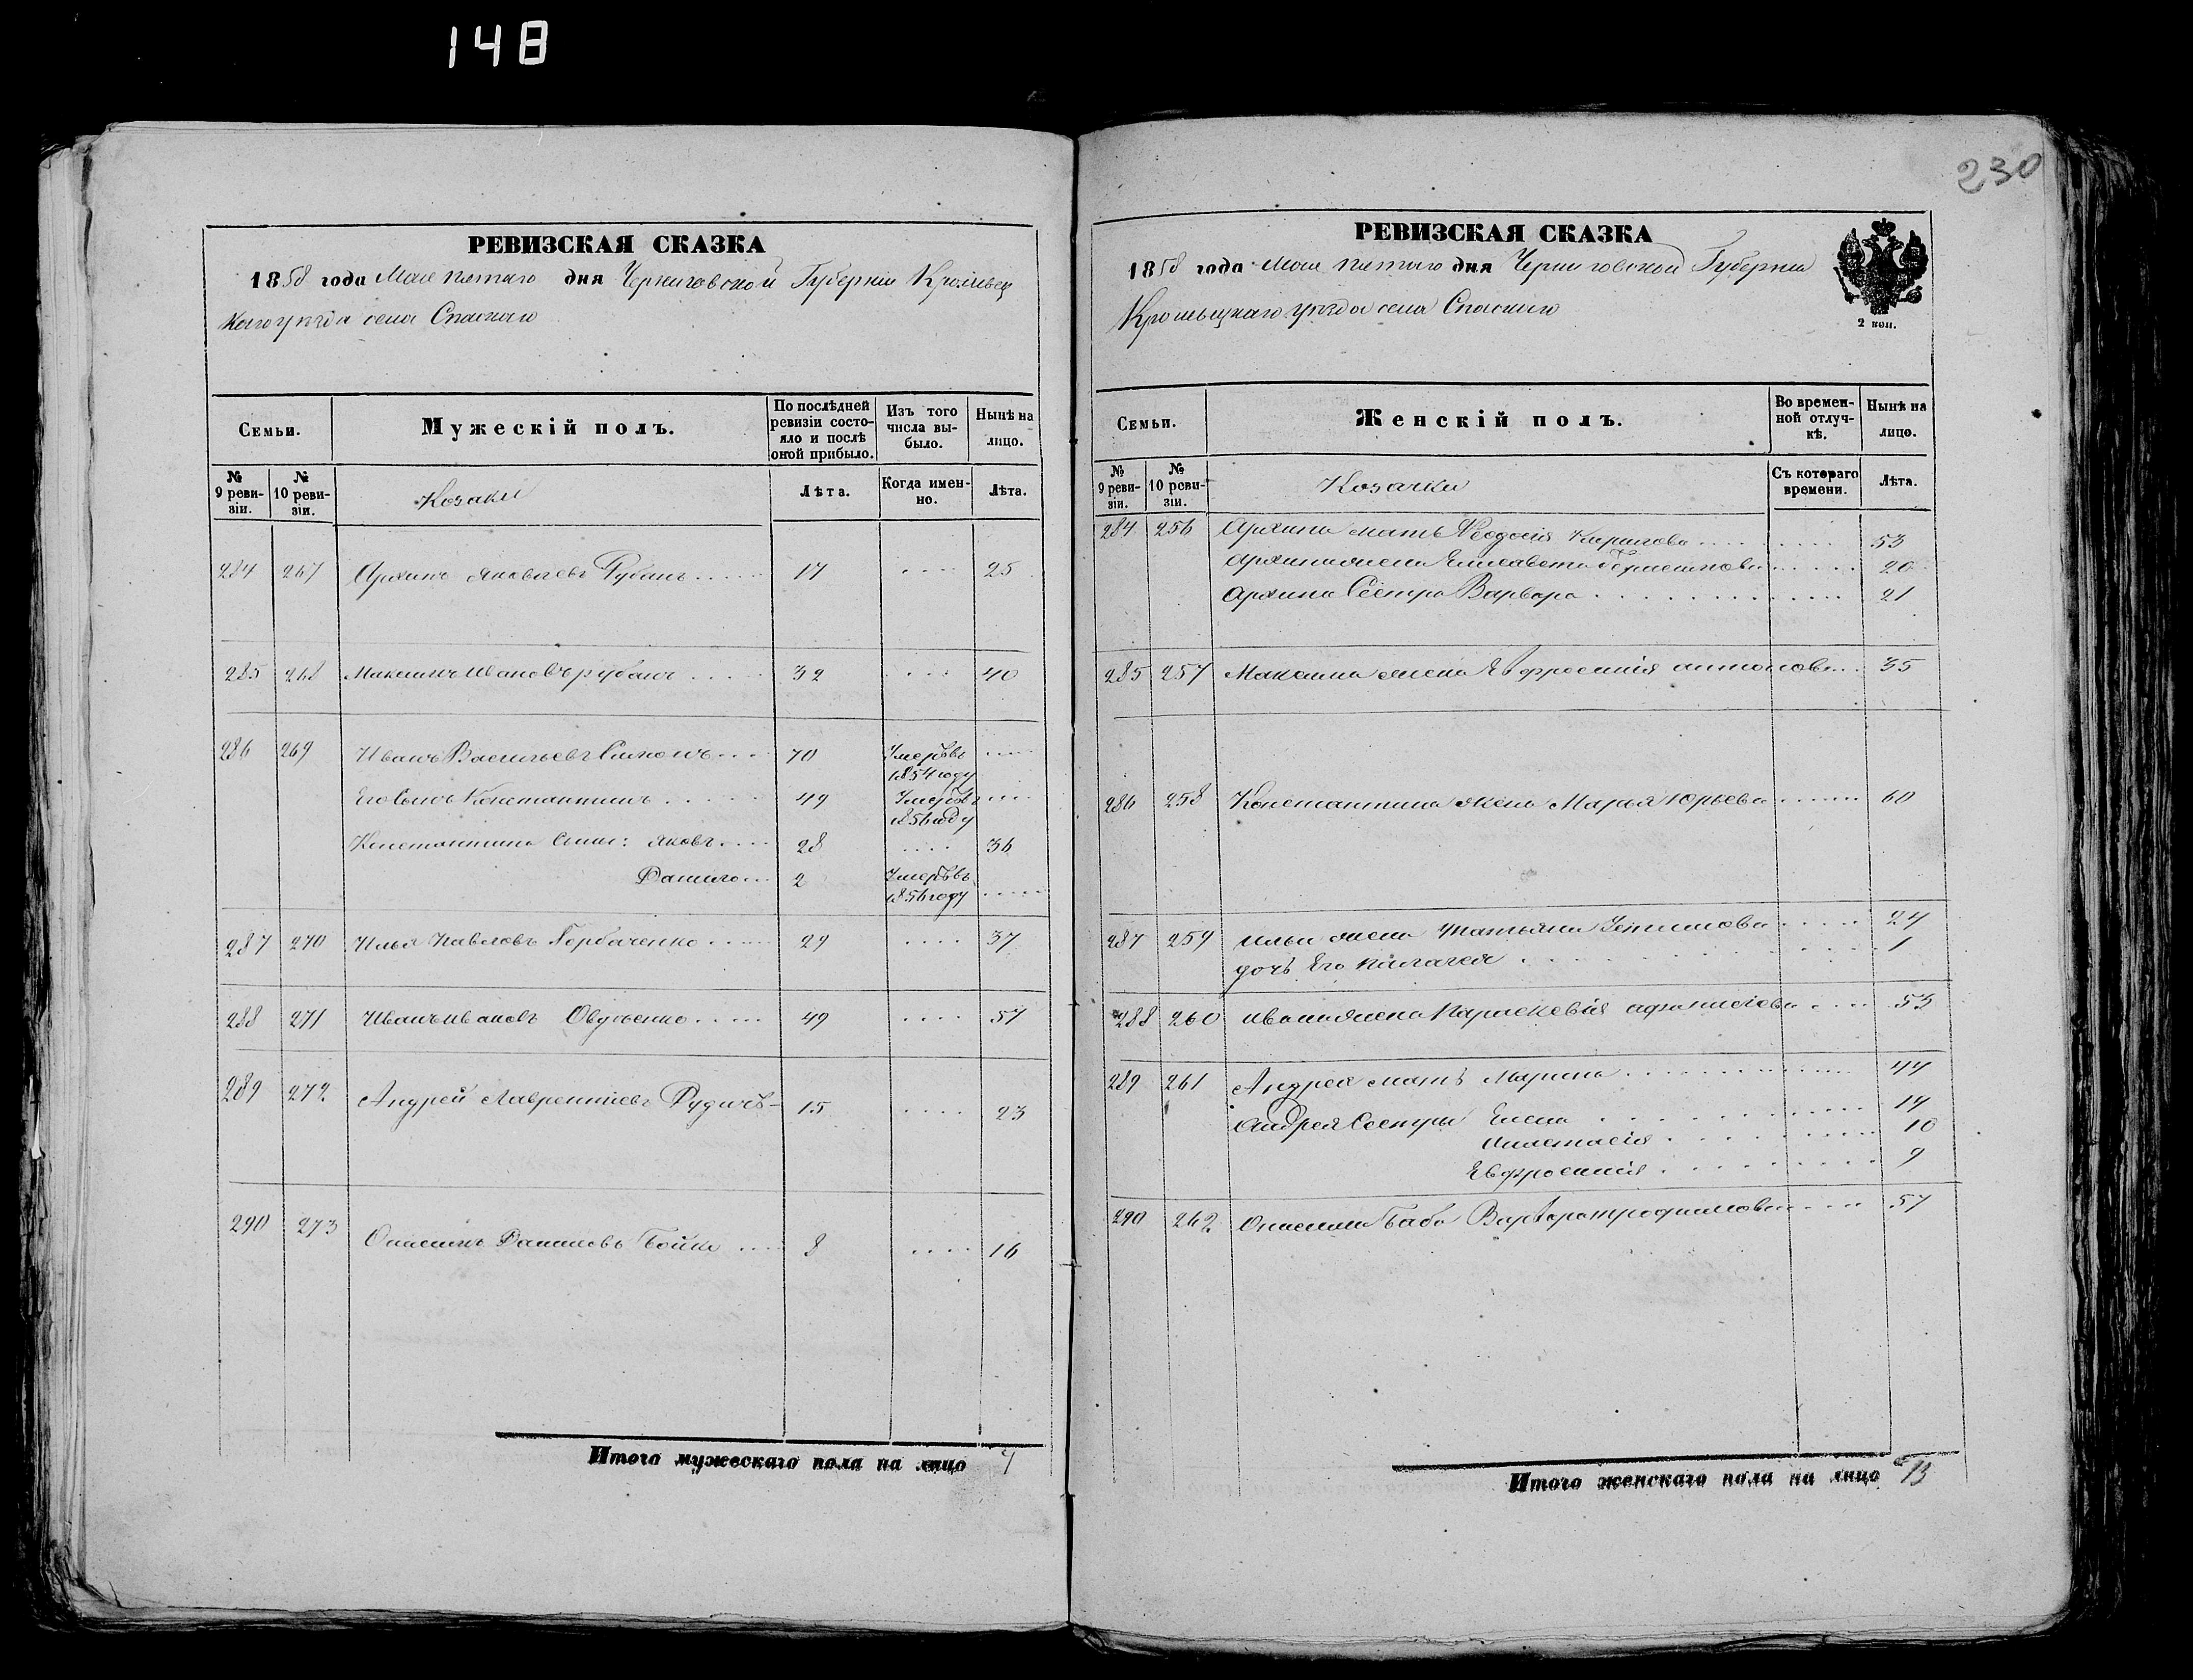 148
230
РЕВИЗСКАЯ СКАЗКА
1858 года Мая пятаго дня Черниговской Губернии Кролевец
каго уѣзда села Спаскаго
Семьи.
Мужескій полъ.
По послѣдней ревизіи состояло и послѣ оной прибыло.
Изъ того числа выбыло.
Нынѣ на лицо.
№ 9 ревизіи.
№ 10 ревизіи.
Козаки
Лѣта.
Когда именно.
Лѣта.
284 267 Архипъ Яковлевъ Рубанъ 17 25
285 268 Максимъ Ивановъ рубанъ 32 40
286 269 Иванъ Васильевъ 70 Умеръ въ 1854 году
Его Сынъ Константинъ 49 Умеръ въ 1856 году
Константина Сыны: Яковъ 28 36
Данило 2 Умеръ въ 1856 году
287 270 Илья Павловъ Горбаченко 29 37
288 271 Иванъ Ивановъ Овдѣенко 49 57
289 272 Андрей Лаврентіевъ Рудичъ 15 23
290 273 Онисимъ Даниловъ Бойко 8 16
Итого мужескаго пола на лицо 7
РЕВИЗСКАЯ СКАЗКА
1858 года Мая пятаго дня Черниговской Губернии
Кролевецкаго уѣзда села Спаскаго
2 коп.
Семьи.
Женскій полъ.
Во временной отлучкѣ.
Нынѣ на лицо.
№ 9 ревизіи.
№ 10 ревизіи.
Козачки
Съ котораго времени.
Лѣта.
284 256 Архипа мать Феодосія Кирилова 53
Архипа жена Елисавета 20
Архипа Сестра Варвара 21
285 257 Максима жена Евфросинія антонова 35
286 258 Константина жена Марья Юрьева 60
287 259 Ильи жена Татьяна 24
дочь Его Палагея 1
288 260 ивана жена Параскевія афанасіева 53
289 261 Андрея мать Марина 44
Андрея Сестры Елена 14
Анастасія 10
Евфросинія 9
290 262 Онисима баба Варвара трофимова 57
Итого женскаго пола на лицо 13